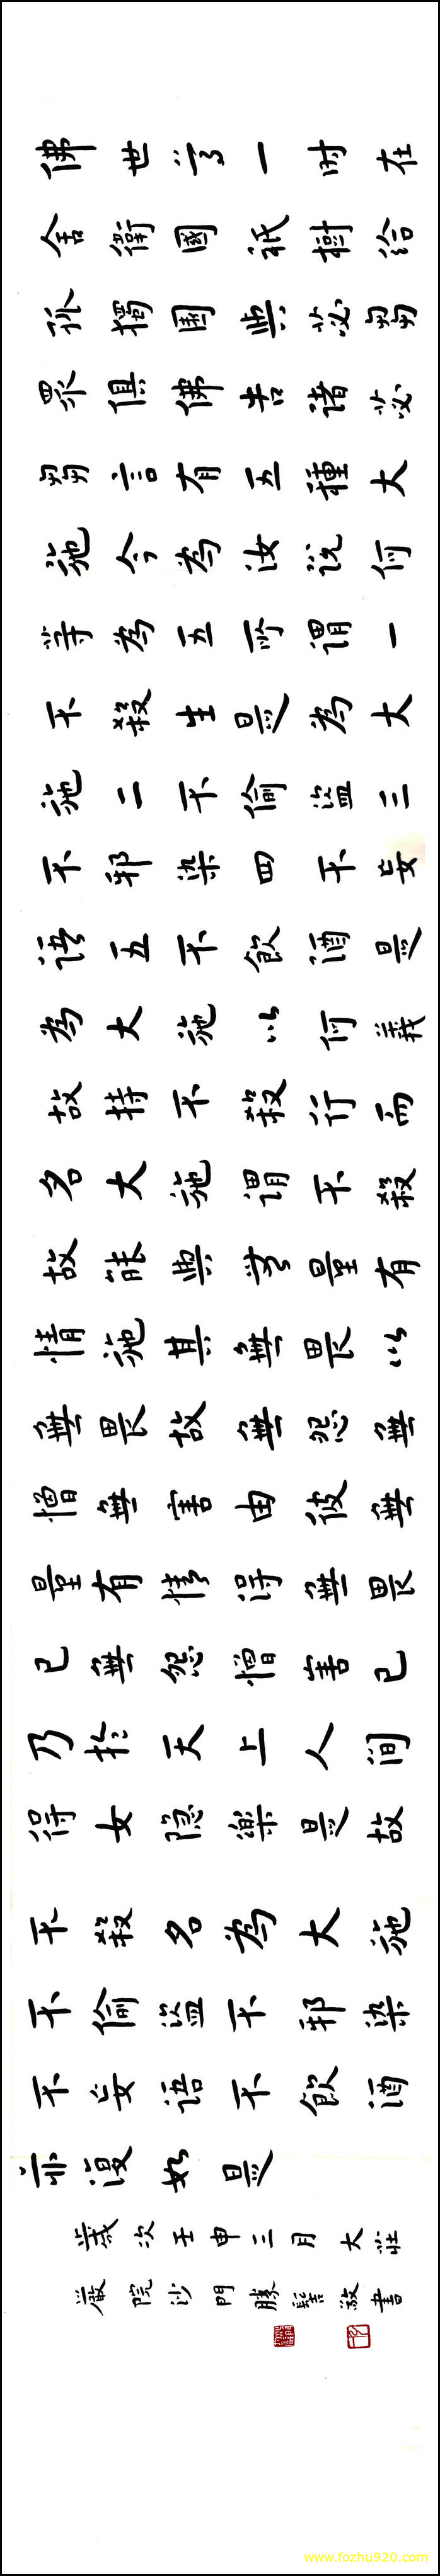 佛世尊一时在
舍衛國祇樹給
孤獨園與苾芻
眾俱佛告諸苾
芻言有五種大
施今為汝说何
等為五所謂一
不殺生是為大
施二不偷盜三
不邪染四不妄
語五不飲酒是
為大施以何義
故持不殺行而
名大施謂不殺
故能與無量有
情施其無畏以
無畏故無怨無
憎無害由彼無
量有情得無畏
已無怨憎害已
乃於天上人间
得安隐樂是故
不殺名為大施
不偷盜不邪染
不妄语不飲酒
亦復如是
歲次壬申三月大莊
嚴院沙門勝髻敬書
www.fozhu920.com